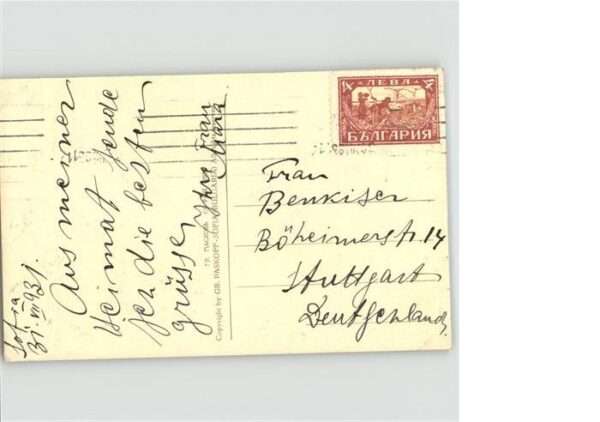 Sofia
31. VII 931.
Aus meiner
Heimat sende
ich die besten
grüsse
Frau
ЛЕВА
БЪЛГАРИЯ
Frau
Benkiser
Böheimerstr 14
Stuttgart
Deutschland
Copyright by GR. PASKOFF-SOFIA